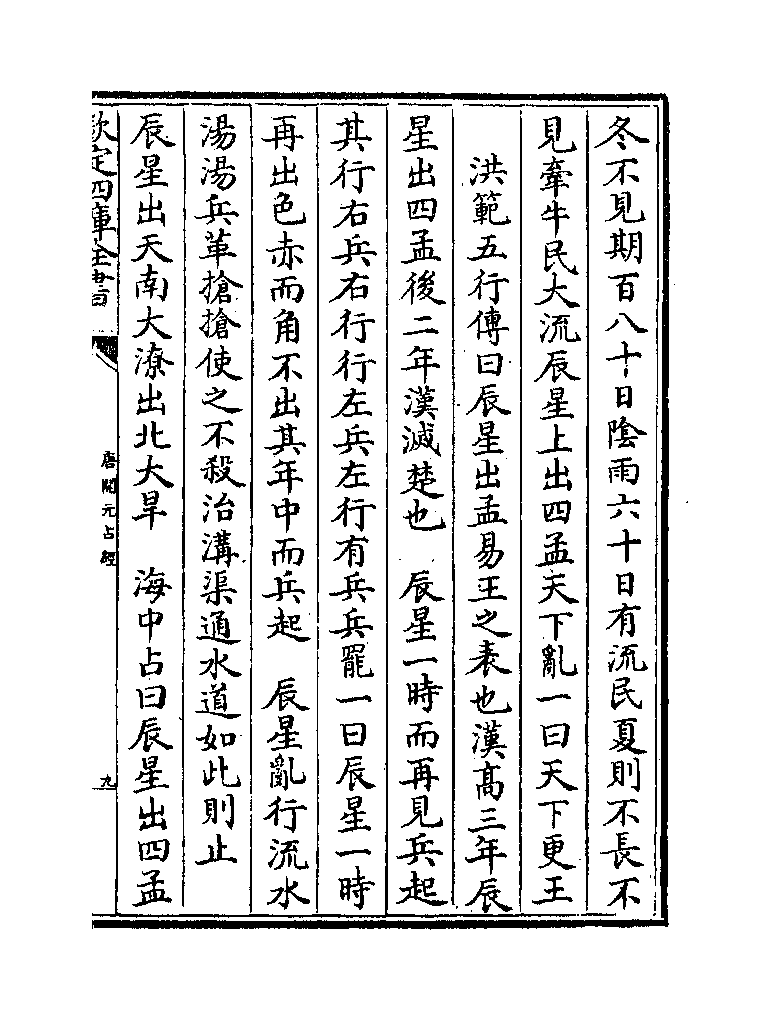 冬不見期百八十日陰雨六十日有流民夏則不長不
見牽牛民大流辰星上出四孟天下亂一曰天下更王
洪範五行傳曰辰星出孟易王之表也漢高三年辰
星出四孟後二年漢滅楚也　辰星一時而再見兵起
其行右兵右行行左兵左行有兵兵罷一曰辰星一時
再出色赤而角不出其年中而兵起　辰星亂行流水
湯湯兵革搶搶使之不殺治溝渠通水道如此則止
辰星出天南大潦出北大旱　海中占曰辰星出四孟
欽定四庫全書
唐開元占經
九